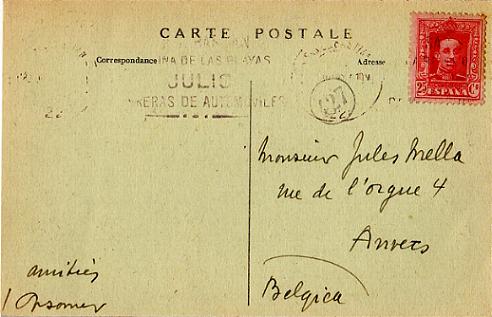 CARTE POSTALE
Correspondance
Adresse
INA DE LAS PLAYAS
JULIO
RERAS DE AUTOMOVILES
27
25 Cs
ESPAÑA
Monsieur Jules Mella
rue de l'orgue 4
Anvers
Belgica
amitiés